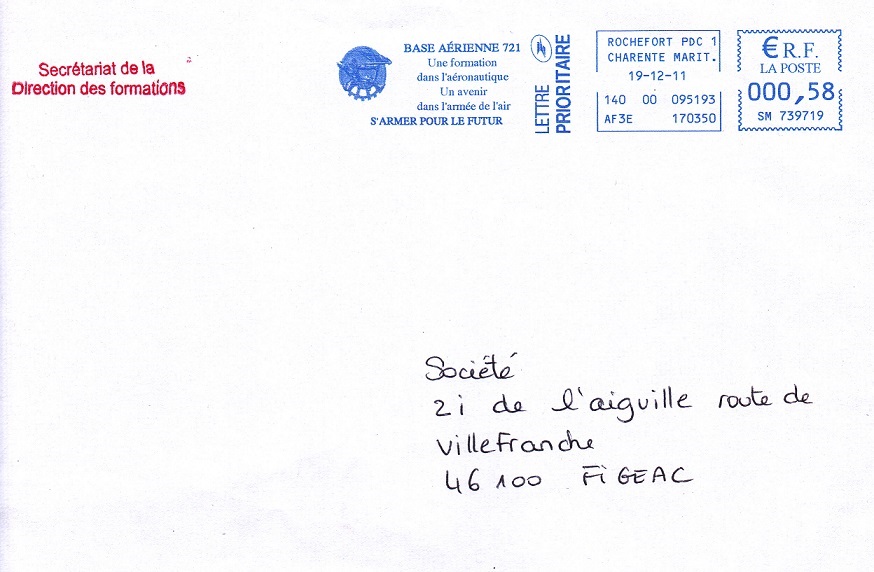 Secrétariat de la
Direction des formations
BASE AÉRIENNE 721
Une formation
dans l'aéronautique
Un avenir
dans l'armée de l'air
S'ARMER POUR LE FUTUR
LETTRE
PRIORITAIRE
ROCHEFORT PDC 1
CHARENTE MARIT.
19-12-11
140 00 095193
AF3E 170350
€ R.F.
LA POSTE
000,58
SM 739719
Société
2i de l'aiguille route de
villefranche
46100 FIGEAC